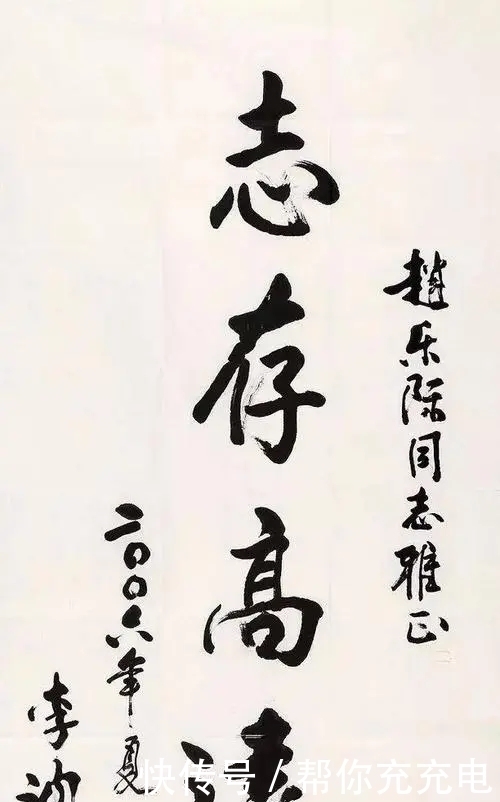 趙乐际同志雅正
志存高
二〇〇六年夏
李
快传号 / 帮你充充电